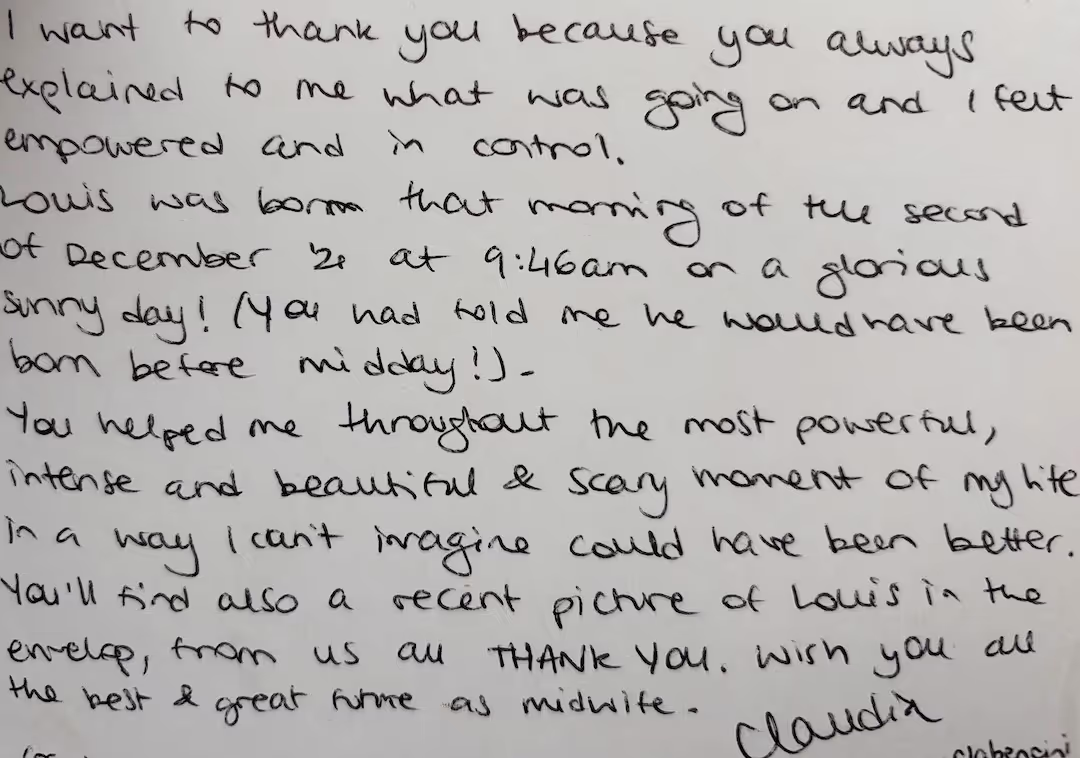 I want to thank you because you always
explained to me what was going on and I felt
empowered and in control.
Louis was born that morning of the second
of December at 9:46am on a glorious
sunny day! (You had told me he would have been
born before midday!).
You helped me throughout the most powerful,
intense and beautiful & scary moment of my life
in a way I can't imagine could have been better.
You'll find also a recent picture of Louis in the
envelop, from us all THANK YOU. Wish you all
the best & great future as midwife.
Claudia
clabencini